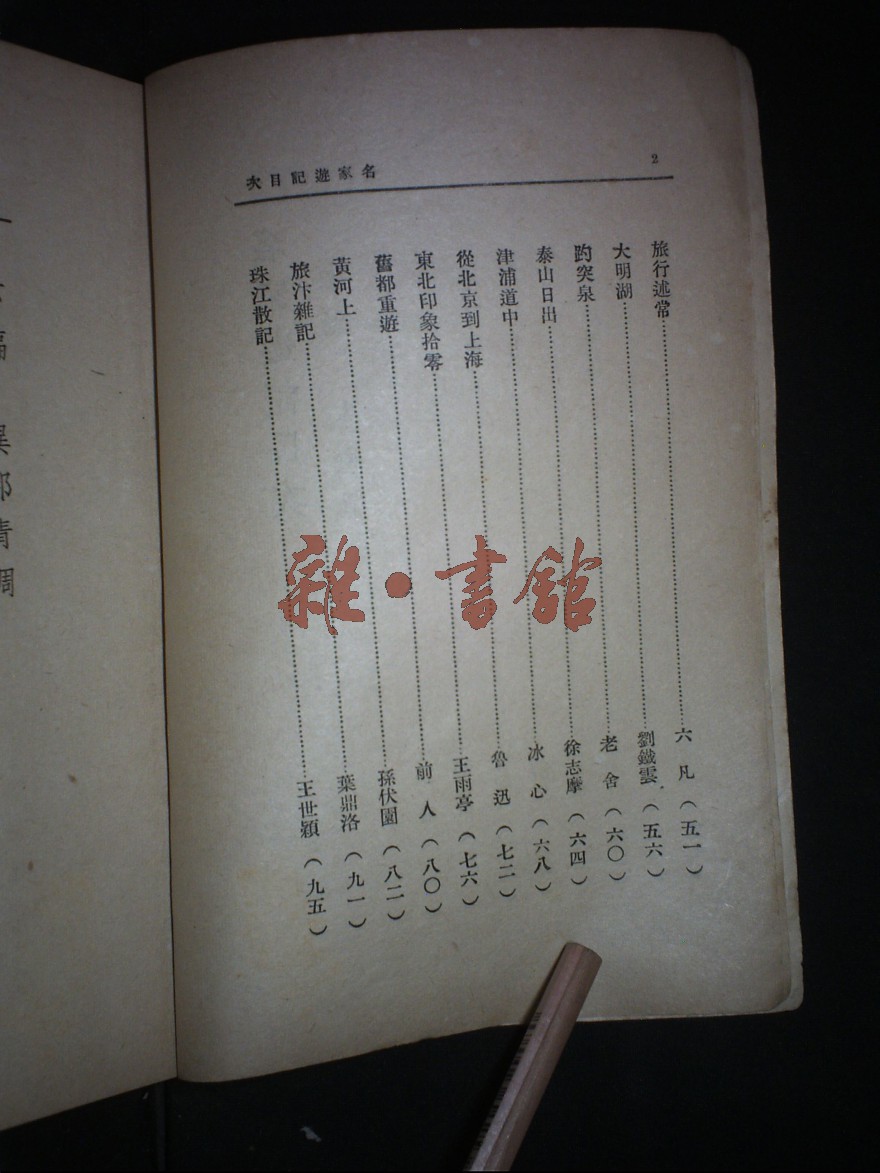 2
名家遊記目次
旅行述常…………六凡（五一）
大明湖…………劉鐵雲（五六）
趵突泉…………老舍（六〇）
泰山日出…………徐志摩（六四）
津浦道中…………冰心（六八）
從北京到上海…………魯迅（七二）
東北印象拾零…………王雨亭（七六）
舊都重遊…………前人（八〇）
黃河上…………孫伏園（八二）
旅汴雜記…………葉鼎洛（九一）
珠江散記…………王世穎（九五）
雜·書館